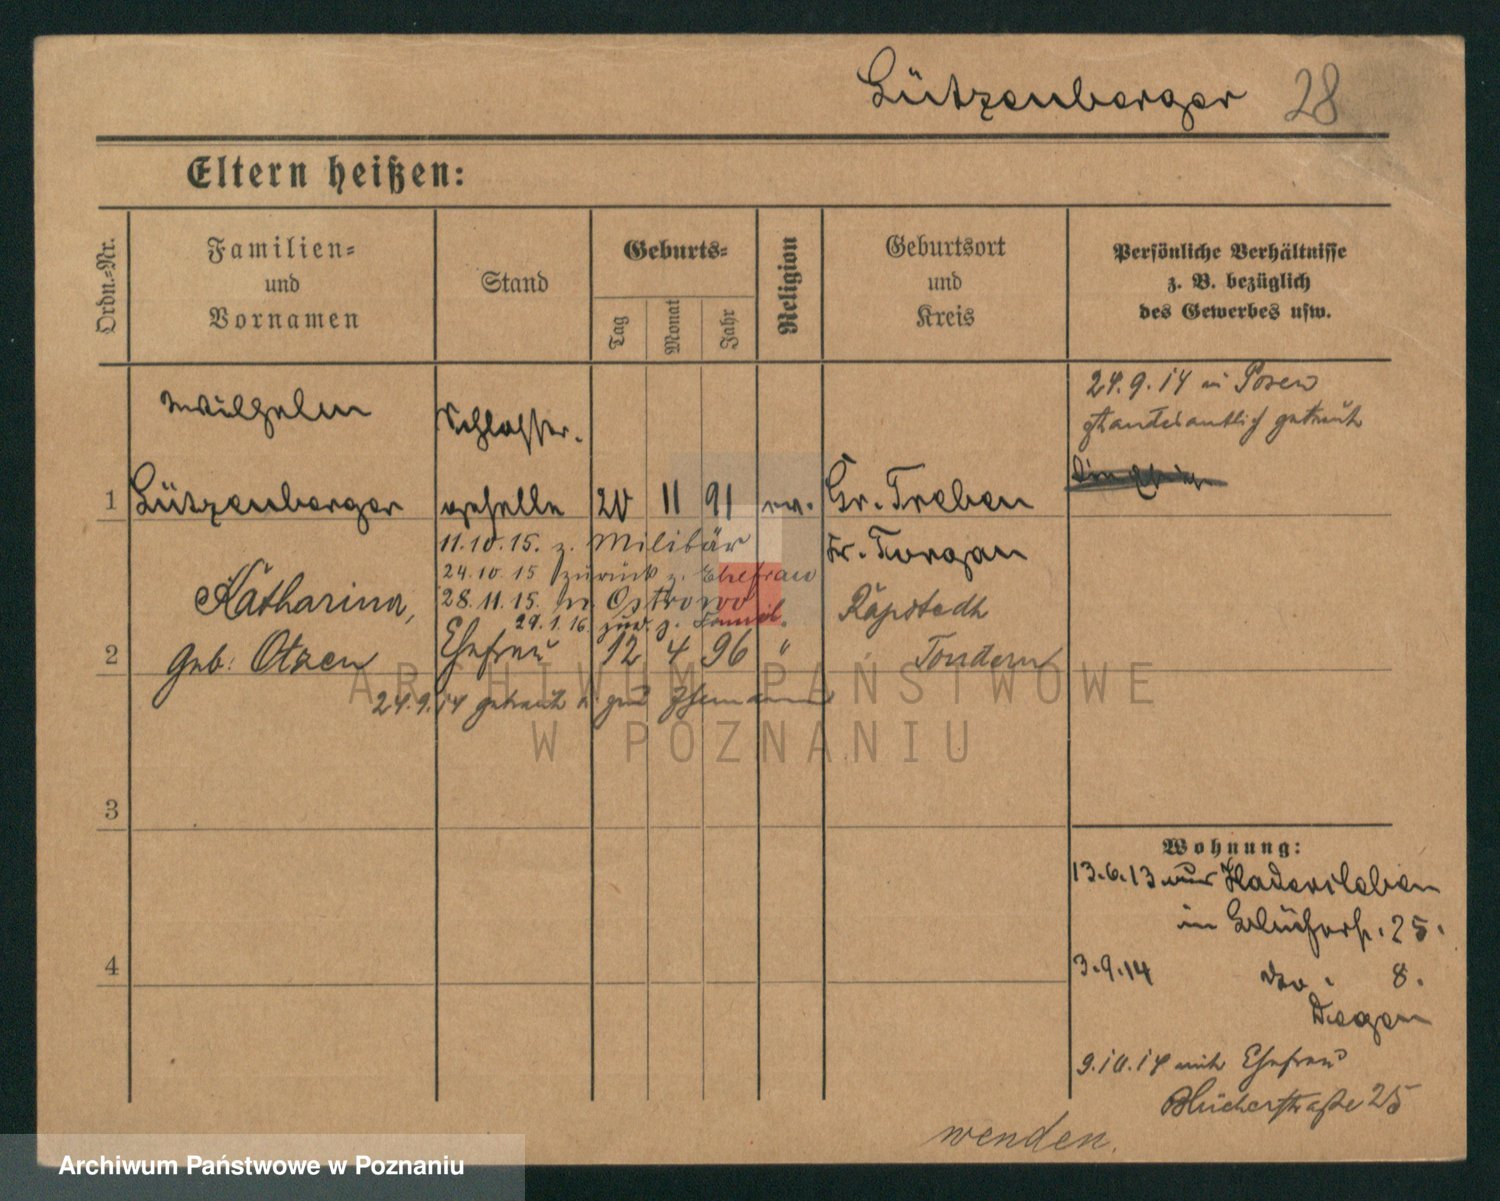 Lützenberger 28
Eltern heißen:
Ordn.-Nr.
Familien-
und
Vornamen
Stand
Geburts-
Tag
Monat
Jahr
Religion
Geburtsort
und
Kreis
Persönliche Verhältnisse
z. B. bezüglich
des Gewerbes usw.
Wilhelm
Schlosser-
24.9.14 in Posen
standesamtlich getraut
1 Lützenberger geselle 20 11 91 ev. Gr. Treben
11.10.15. z. Militär
Kr. Torgau
24.10.15 zurück z. Ehefrau
Katharina,
28.11.15. n. Ostrowo
Räpstedt
29.1.16. zur. z. Famil.
2 geb: Otzen Ehefrau 12 4 96 " Tondern
24.9.14 getraut Ehemann
3
4
Wohnung:
13.6.13 aus Hadersleben
in Blücherst. 25.
3.9.14 do. 8.
Degen
9.10.14 mit Ehefrau
Blücherstraße 25
wenden.
ARCHIWUM PAŃSTWOWE
W POZNANIU
Archiwum Państwowe w Poznaniu